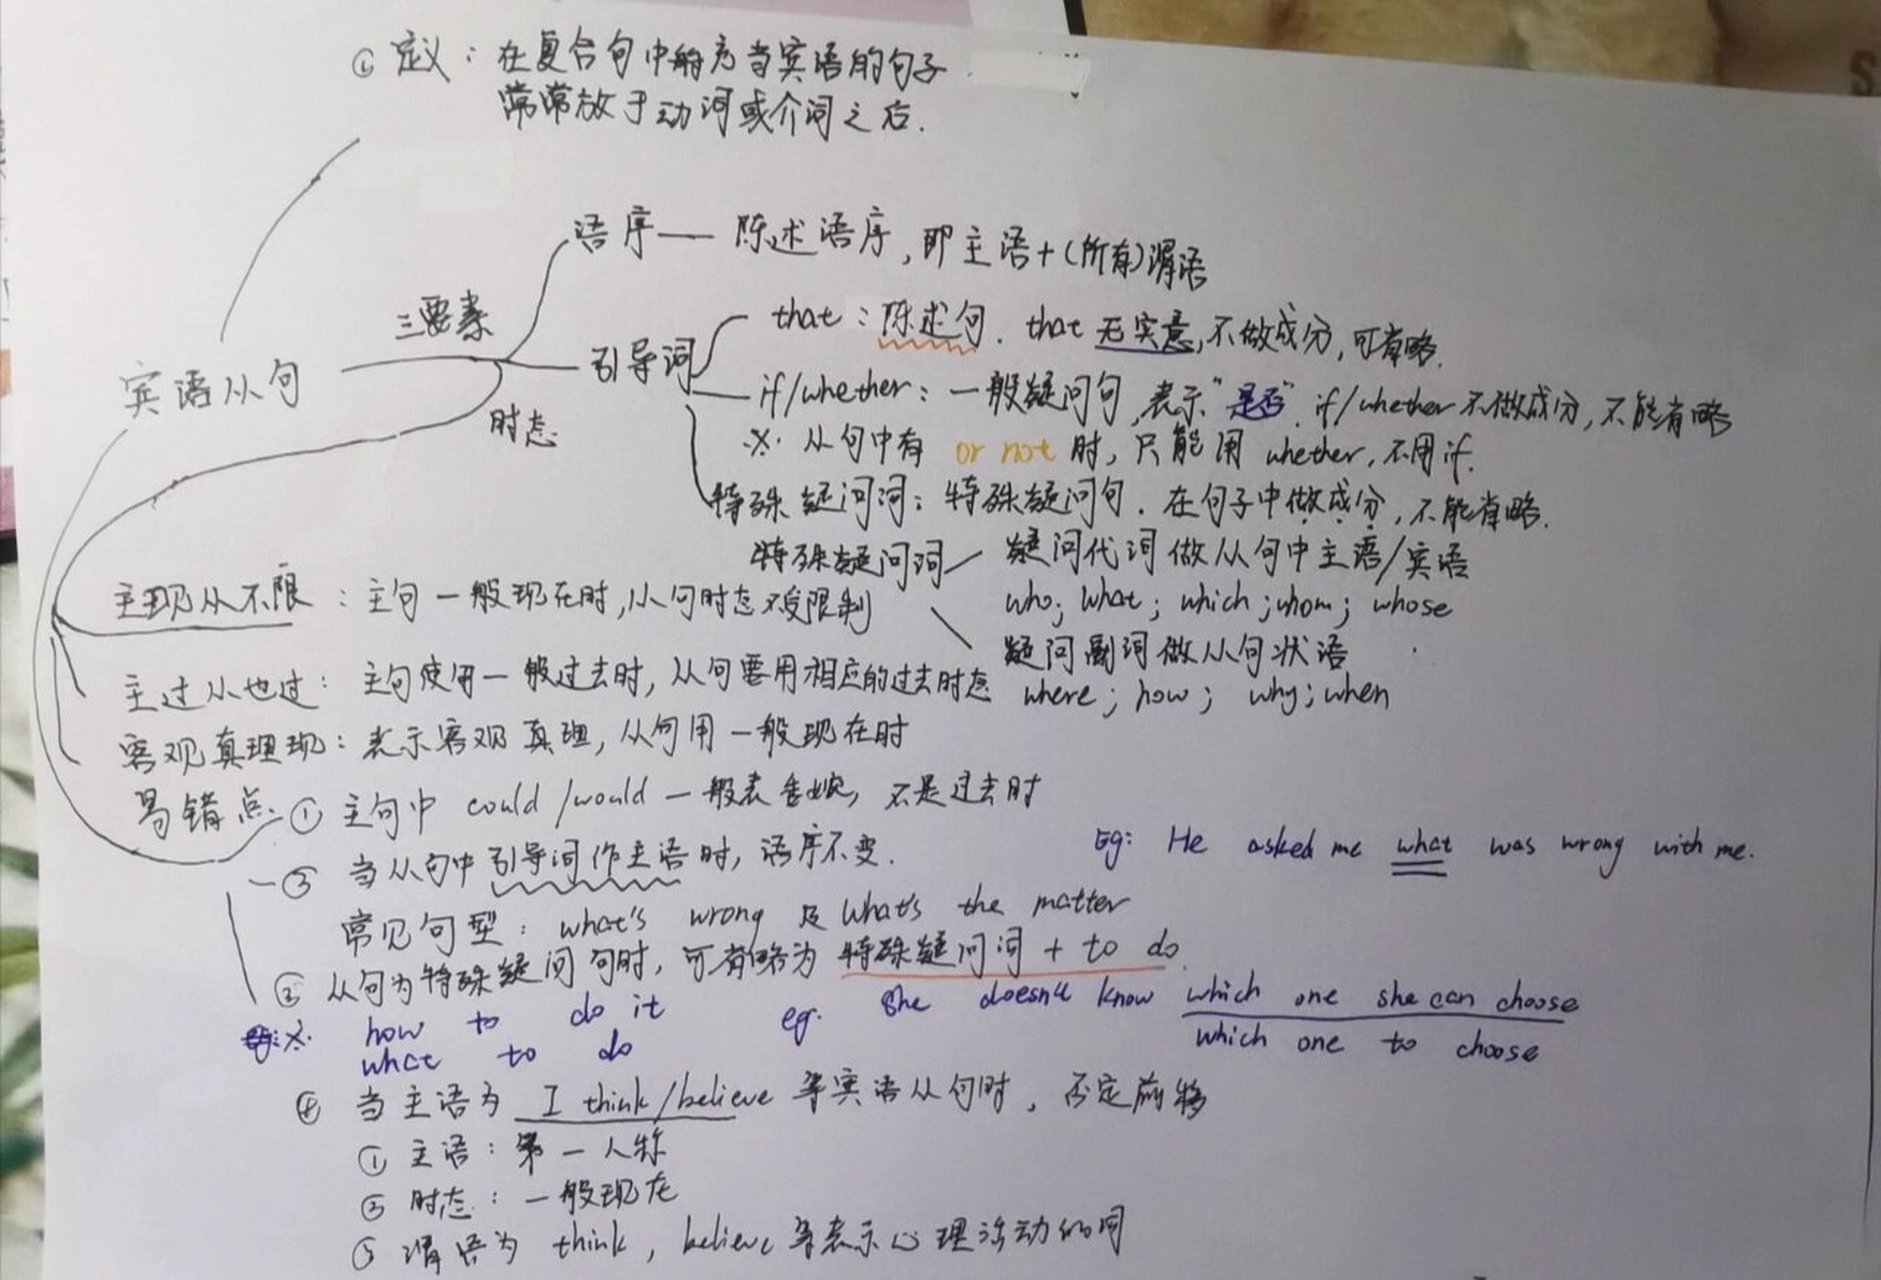 定义：在复合句中能充当宾语的句子
常常放于动词或介词之后.
语序 — 陈述语序,即主语+(所有)谓语
三要素
宾语从句
引导词
that：陈述句. that 无实意,不做成分,可省略.
if/whether：一般疑问句,表示"是否". if/whether 不做成分,不能省略
※. 从句中有 or not 时,只能用 whether,不用if.
时态
特殊疑问词：特殊疑问句. 在句子中做成分,不能省略.
特殊疑问词
疑问代词做从句中主语/宾语
who; what; which; whom; whose
疑问副词做从句状语
where; how; why; when
主现从不限：主句一般现在时,从句时态不受限制
主过从也过：主句使用一般过去时,从句要用相应的过去时态
客观真理现：表示客观真理,从句用一般现在时
易错点：① 主句中 could/would 一般表委婉,不是过去时
② 当从句中引导词作主语时,语序不变. Eg: He asked me what was wrong with me.
常见句型：what's wrong 及 What's the matter
③ 从句为特殊疑问句时,可省略为 特殊疑问词 + to do.
※. how to do it
what to do
eg. She doesn't know which one she can choose
which one to choose
④ 当主语为 I think/believe 等宾语从句时,否定前移
① 主语：第一人称
② 时态：一般现在
③ 谓语为 think, believe 等表示心理活动的词